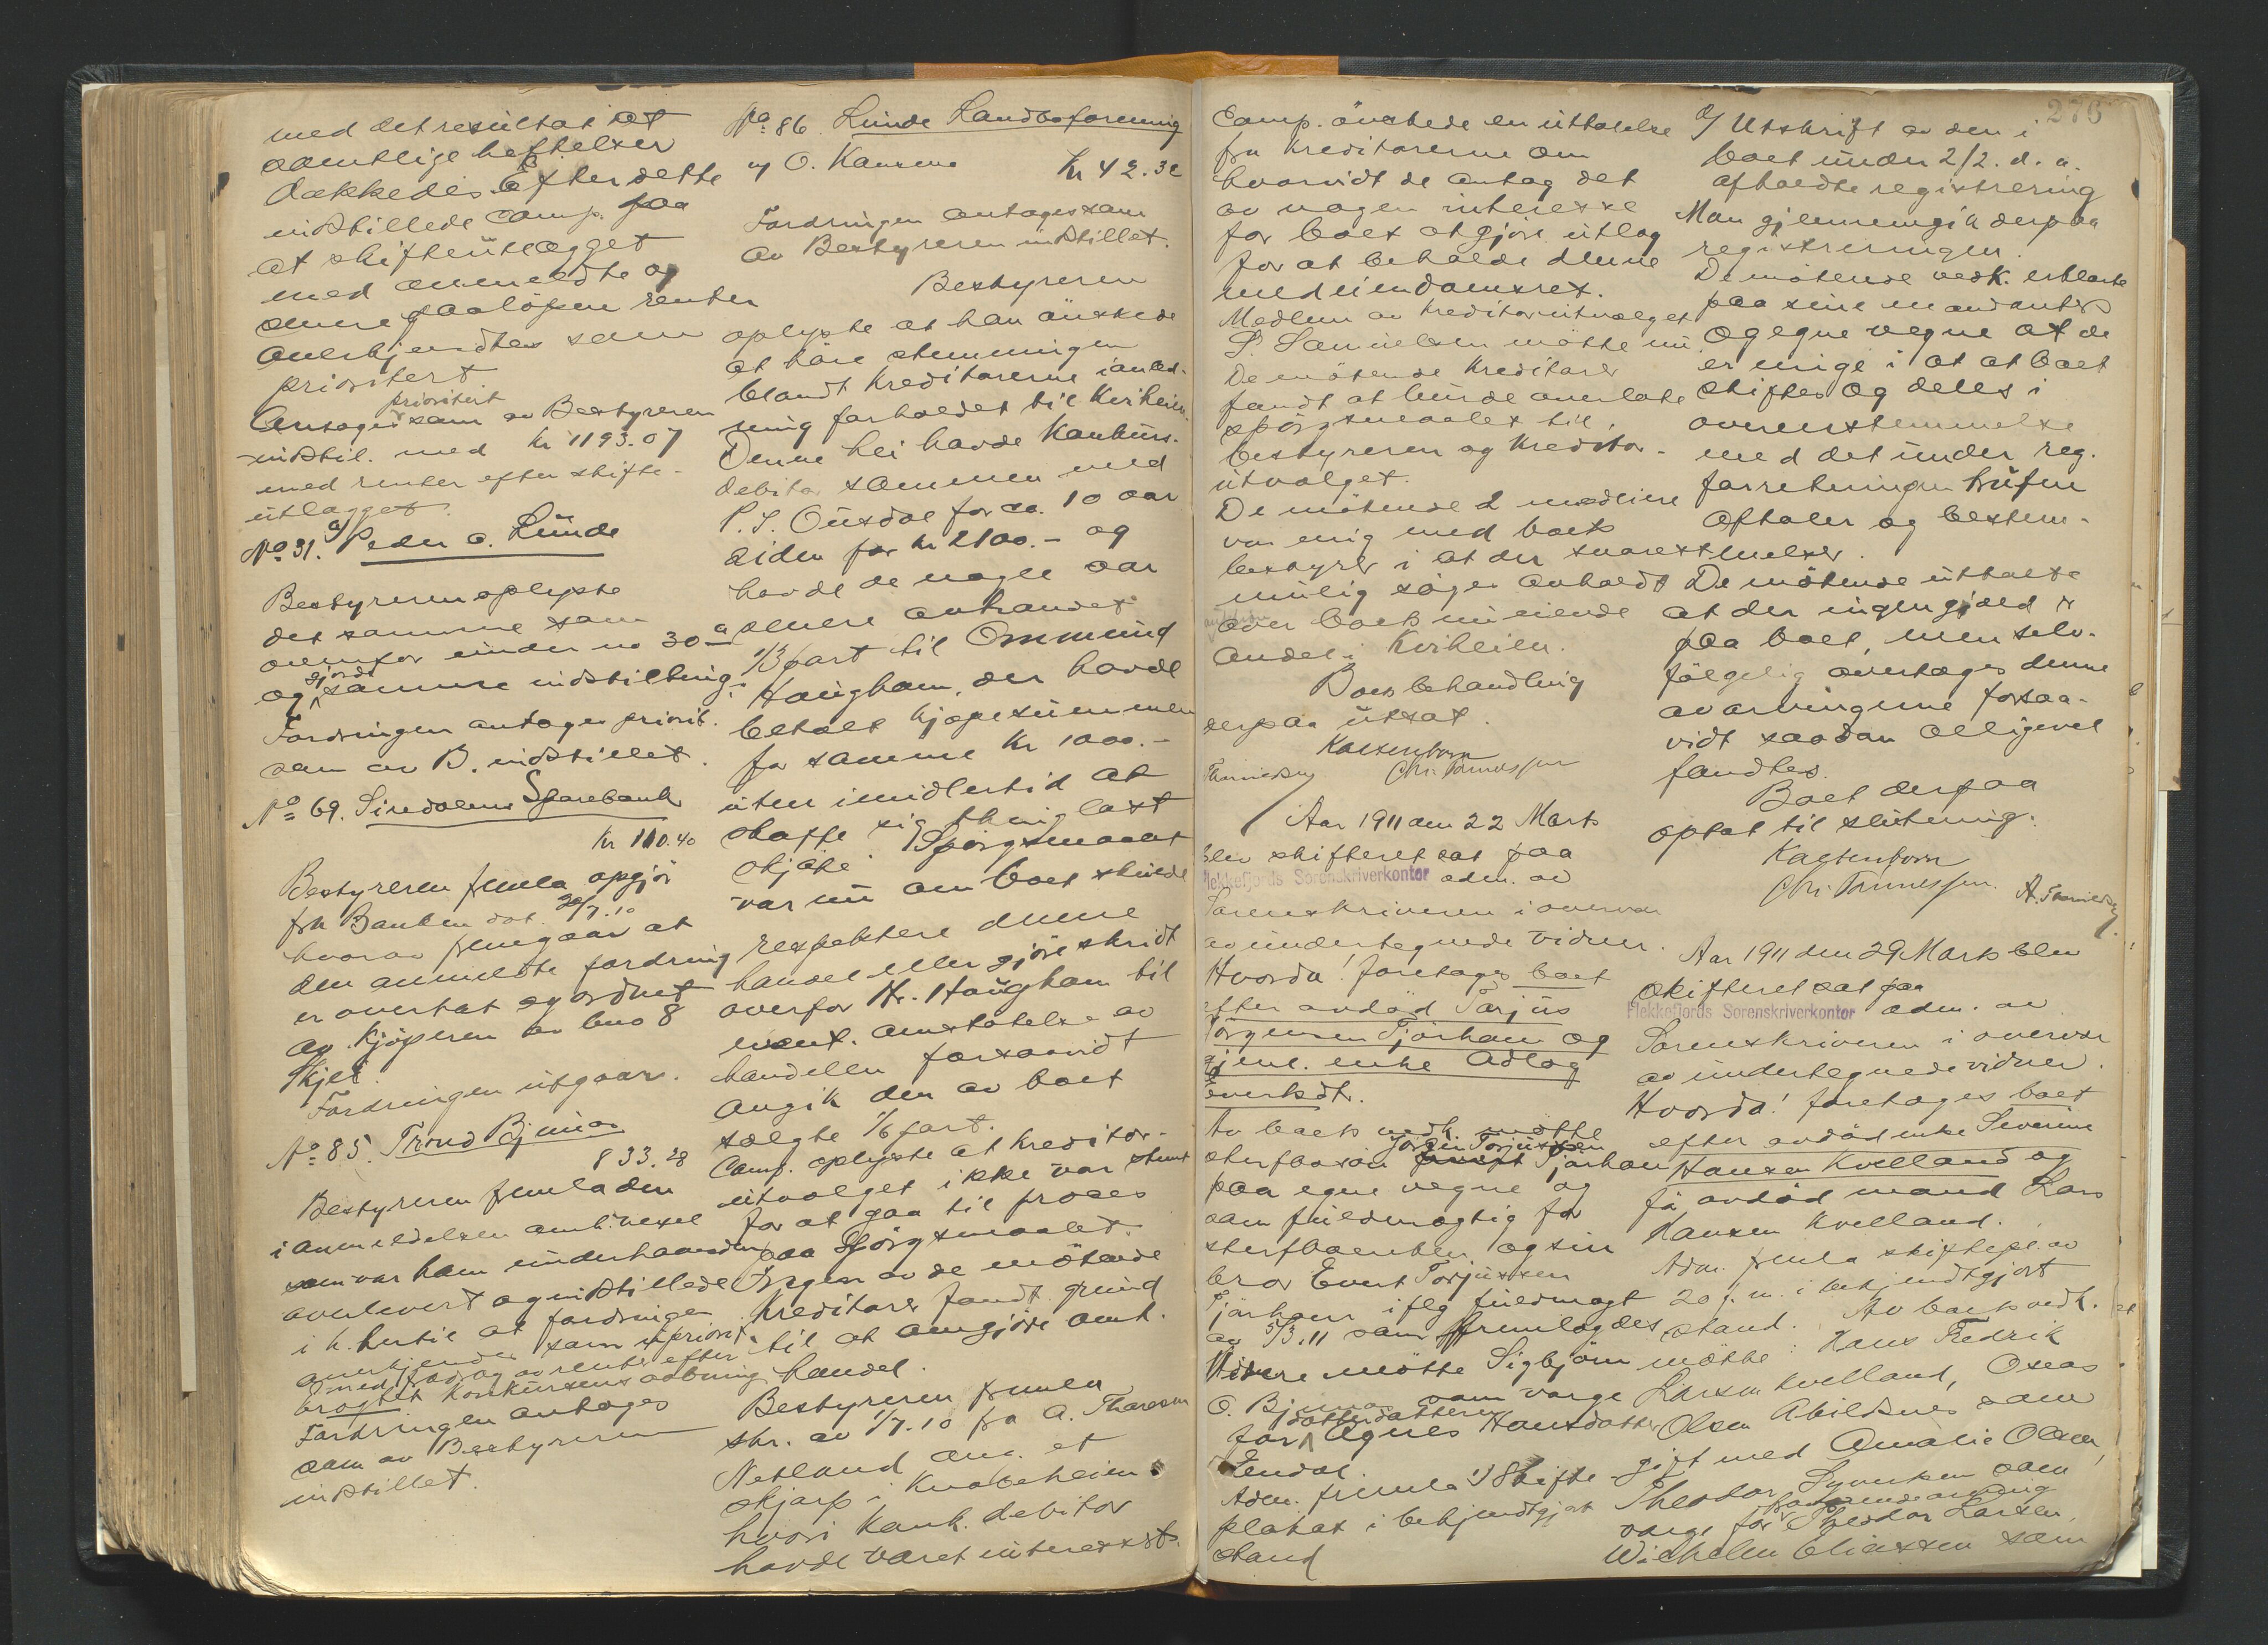 med det resultat at
samtlige heftelser
dækkedes. Efter dette
indstillede comp. paa
at skifteutlægget
med anmeldte og
senere paaløpne renter
anerkjendtes som
prioritert.
prioritert
Antages som av Bestyreren
indstil. med kr 1193.07
med renter efter skifte-
utlægget.
No 31.a Peder O. Lunde
Bestyreren oplyste
det samme som
ovenfor under no 30 a
og gjorde samme indstilling.
Fordringen antages priorit.
som av B. indstillet.
No 69. Siredalens Sparebank
kr 110.40
Bestyreren fremla opgjør
fra Banken dat. 20/7.10
hvorav fremgaar at
den anmeldte fordring
er overtat og ordnet
av kjøperen av bno 8
Fordringen utgaar.
No 85. Trond Bjunes
833.28
Bestyreren fremla den
i anmeldelsen omh. vexel
som var ham underhaanden
overlevert og indstillede
i h. hertil at fordringen
anerkjendes som uprioritr.
med fradrag av rente efter
konkursens aabning
Fordringen antages
som av Bestyreren
indstillet.
No 86. Lunde Landboforening
v/ O. Hansen kr 42.32
Fordringen antages som
av Bestyreren indstillet.
Bestyreren
oplyste at han ønskede
at høre stemningen
blandt kreditorerne i anled-
ning forholdet til Kirheien.
Denne hei havde konkurs-
debitor sammen med
P. S. Ousdal for ca. 10 aar
siden for kr 2100.- og
havde de nogle aar
senere avhændet
1/3 part til Ommund
Haugham, der havde
betalt kjøpesummen
for samme kr 1000.-
uten imidlertid at
skaffe sig thinglæst
skjøte. Spørgsmaalet
var nu om boet skulde
respektere denne
handel eller gjøre skridt
overfor Hr. Haugham til
event. omstøtelse av
handelen forsaavidt
angik den av boet
solgte 1/6 part.
Comp. oplyste at kreditor-
utvalget ikke var stemt
for at gaa til proces
paa spørgsmaalet.
Ingen av de møtende
kreditorer fandt grund
til at omgjøre omh.
handel.
Bestyreren fremla
skr. av 1/7.10 fra A. Thoresen
Netland ang. et
skjærp i Knabeheien
hvori konk. debitor
havde været interessert.
276
Comp. ønskede en uttalelse
fra kreditorerne om
hvorvidt de antog det
av nogen interesse
for boet at gjøre utlæg
for at beholde denne
medeiendomsret.
Medlem av kreditorutvalget
S. Samuelsen møtte nu.
De møtende kreditorer
fandt at burde overlate
spørgsmaalet til
bestyreren og kreditor-
utvalget.
De møtende 2 medlemmer
var enig med boets
bestyrer i at der snarest
mulig søges avholdt
auktion
over boets nuværende
andel i Kirheien.
Boets behandling
derpaa utsat.
Kaltenborn
Chr. Tønnessen
Aar 1911 den 22 Mars
blev skifteret sat paa
Flekkefjords Sorenskriverkontor adm. av
Sorenskriveren i overvær
av undertegnede vidner.
Hvorda! foretages boet
efter avdød Tarjus
Jørgensen Tjørhom og
gjenl. enke Adlog
Evertsdtr.
Av boets vedk. møtte
Jørgen Torjussen
sterfbosøn Tjørhom
paa egne vegne og
som fuldmægtig for
sterfboenken og sin
bror Evert Torjussen
Tjørhom iflg fuldmagt
av 5/3.11 som fremlagdes
Videre møtte Sigbjørn
O. Bjunes som værge
datterdatteren
for Agnes Hansdatter
Adm. fremla 1) Skifte-
plakat i bekjendtgjort
stand
2/ Utskrift av den i
boet under 2/2. d. a.
afholdte registrering
Man gjennemgik derpaa
registreringen.
De møtende vedk. erklærte
paa sine mandanters
og egne vegne at de
er enige i at at boet
skiftes og deles i
overensstemmelse
med det under reg.
forretningen trufne
aftaler og bestem-
melser.
De møtende uttalte
at der ingen gjæld er
paa boet, men selv-
følgelig overtages denne
av arvingerne forsaa-
vidt saadan alligevel
fandtes.
Boet derpaa
optat til slutning.
Kaltenborn
Chr. Tønnessen.
Aar 1911 den 29 Mars blev
skifteret sat paa
Flekkefjords Sorenskriverkontor adm. av
Sorenskriveren i overvær
av undertegnede vidner.
Hvorda! foretages boet
efter avdød enke Severine
Hansen Kvelland og
før avdød mand Lars
Hansen Kvelland.
Adm. fremla skiftepl. av
20 f. m. i bekjendtgjort
stand. Av boets vedk.
møtte: Hans Fredrik
Larsen Kvelland, Oseas
Olsen Abildsnes som
gift med Amalie Olsen,
Theodor Syvertsen som
værge for Theodor Larsen,
Wilhelm Eliassen som